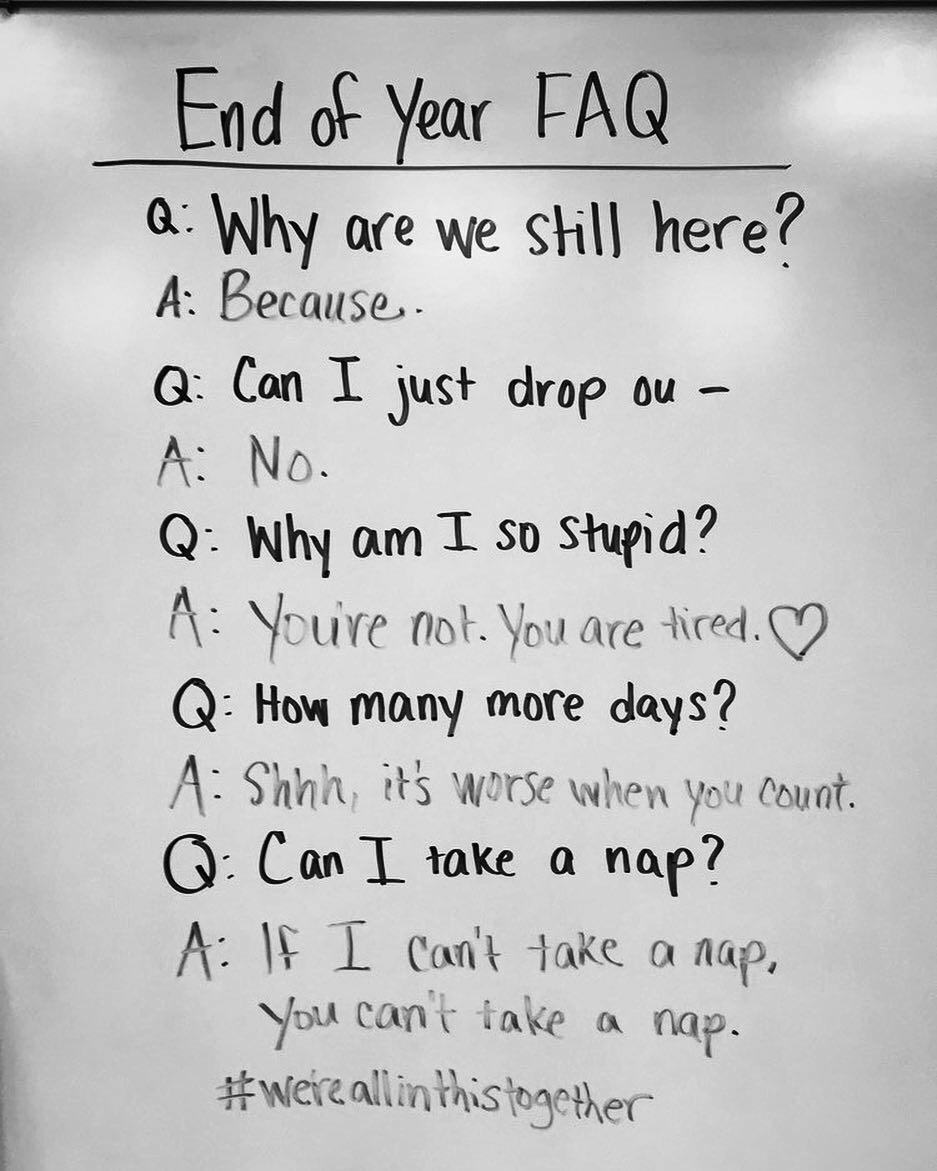 End of Year FAQ
Q: Why are we still here?
A: Because.
Q: Can I just drop ou -
A: No.
Q: Why am I so stupid?
A: You're not. You are tired.♡
Q: How many more days?
A: Shhh, it's worse when you count.
Q: Can I take a nap?
A: If I can't take a nap,
you can't take a nap.
#we'reallinthistogether